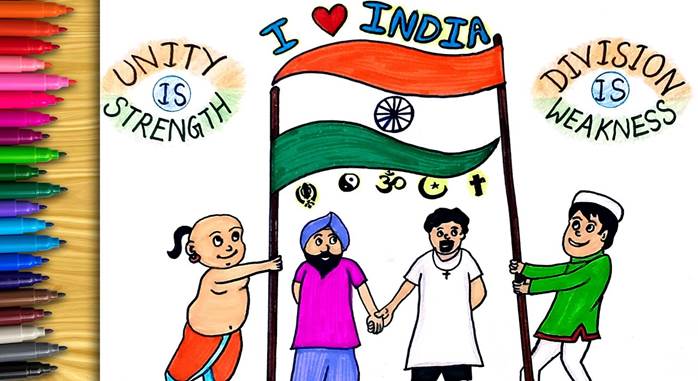 I ❤ INDIA
UNITY
IS
STRENGTH
DIVISION
IS
WEAKNESS
ॐ